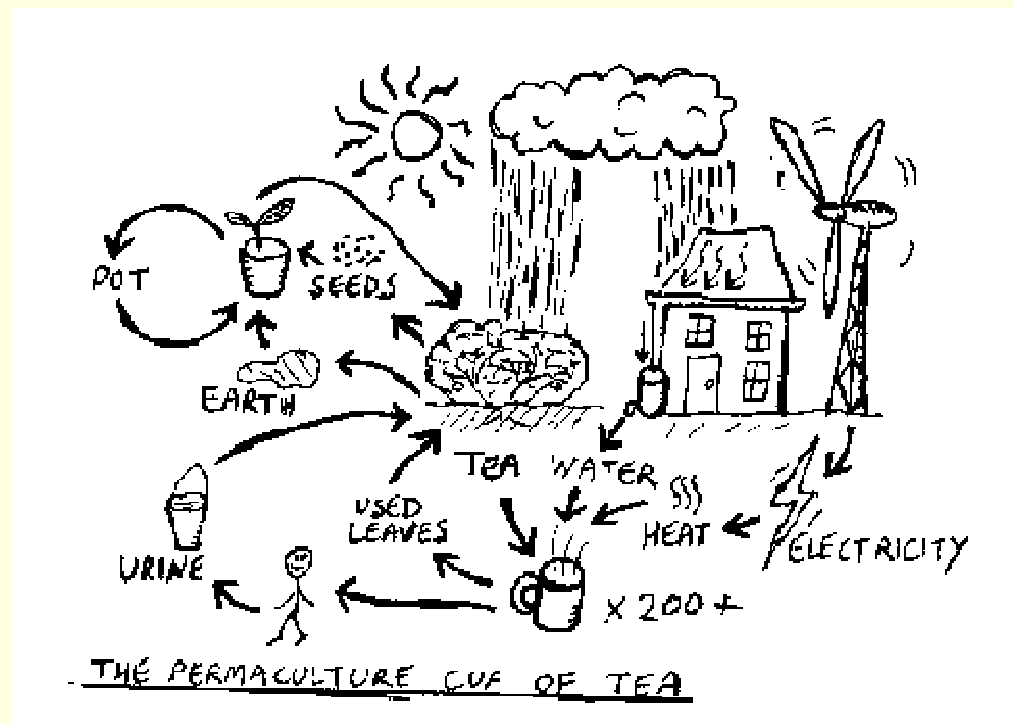 POT
SEEDS
EARTH
TEA WATER
USED
LEAVES
HEAT
ELECTRICITY
URINE
x 200 +
THE PERMACULTURE CUP OF TEA